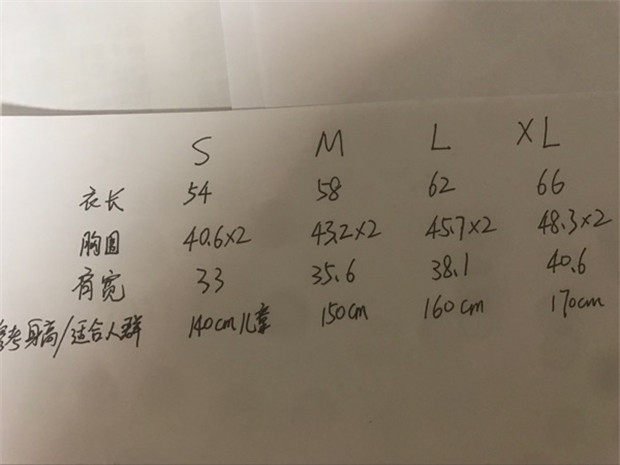 S M L XL
衣长 54 58 62 66
胸围 40.6×2 43.2×2 45.7×2 48.3×2
肩宽 33 35.6 38.1 40.6
参考身高/适合人群 140cm儿童 150cm 160cm 170cm